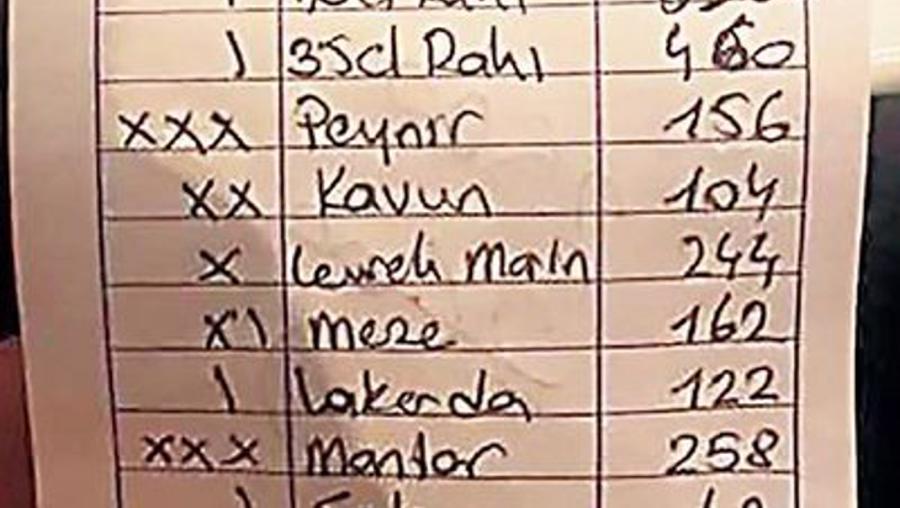 1 35cl Rakı 460
xxx Peynir 156
xx Kavun 104
x Levrek Marin 244
x1 meze 162
1 Lakerda 122
xxx Mantar 258